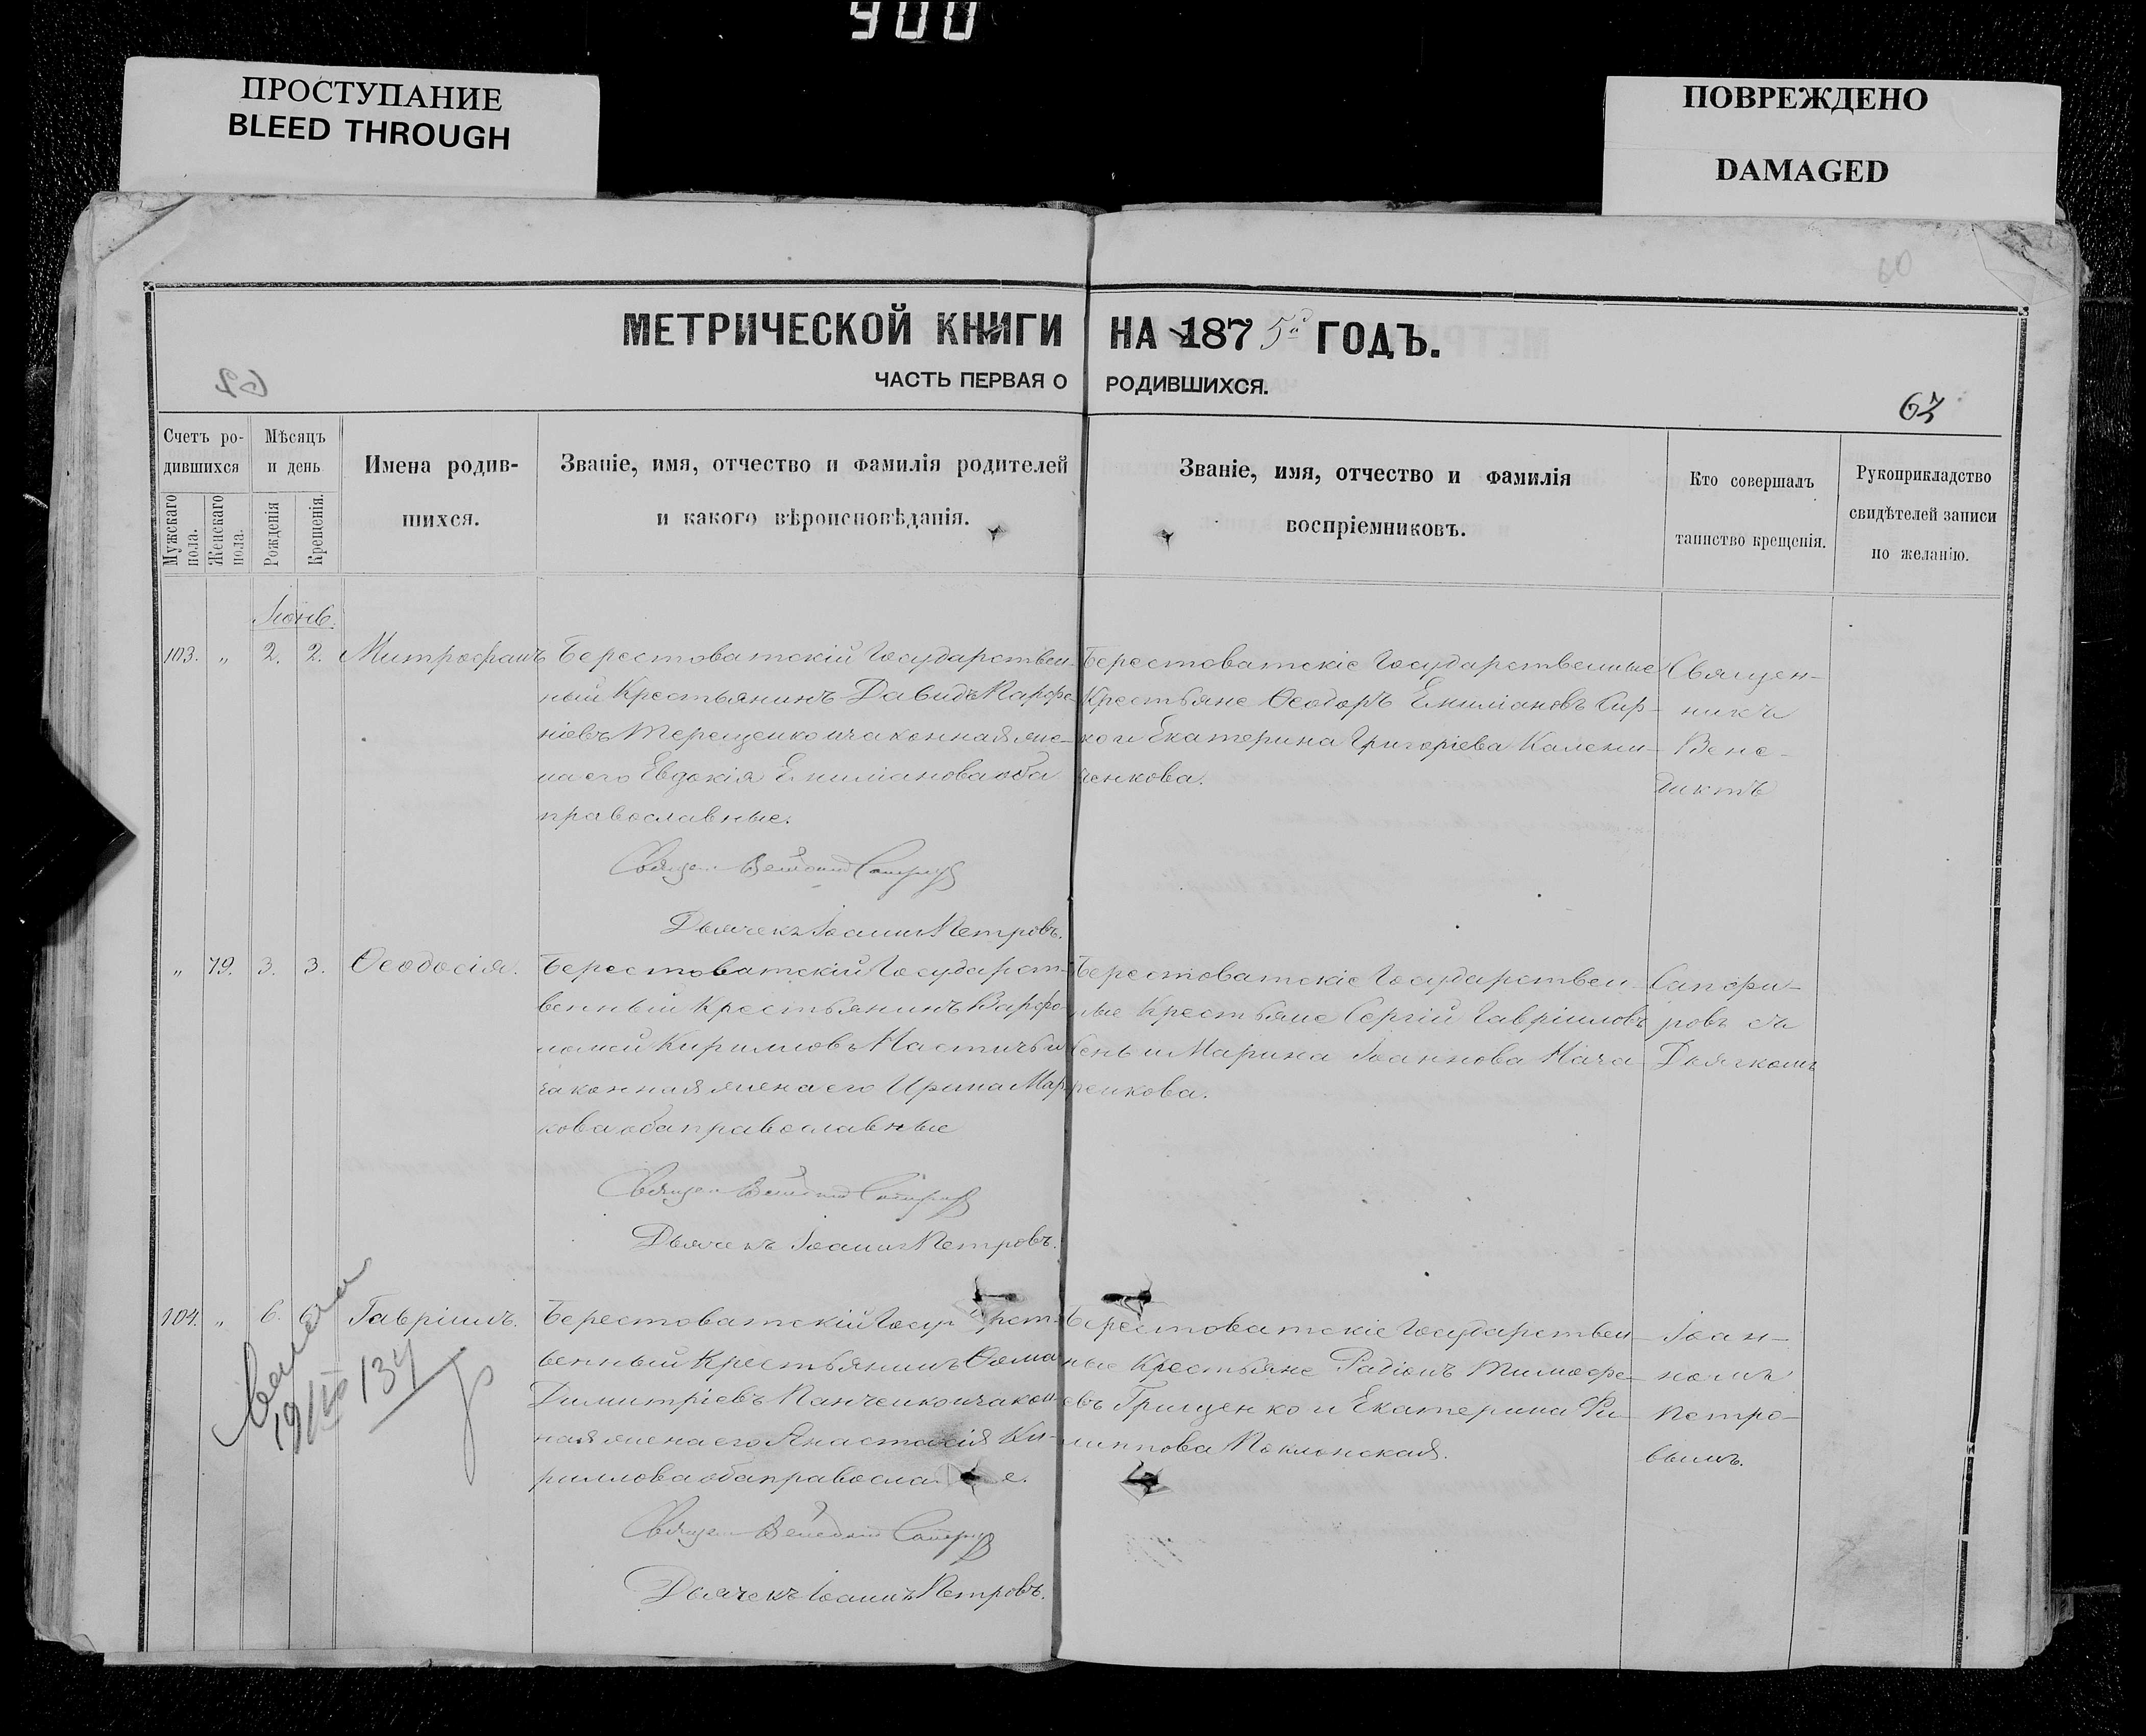 900
ПРОСТУПАНИЕ
BLEED THROUGH
ПОВРЕЖДЕНО
DAMAGED
60
МЕТРИЧЕСКОЙ КНИГИ НА 1875й ГОДЪ.
ЧАСТЬ ПЕРВАЯ О РОДИВШИХСЯ.
62
Счетъ ро-
дившихся
Мужскаго пола.
Женскаго пола.
Мѣсяцъ
и день
Рожденія
Крещенія.
Имена родив-
шихся.
Званіе, имя, отчество и фамилія родителей
и какого вѣроисповѣданія.
Званіе, имя, отчество и фамилія
воспріемниковъ.
Кто совершалъ
таинство крещенія.
Рукоприкладство
свидѣтелей записи
по желанію.
Іюнь.
103. „ 2. 2. Митрофанъ
Берестоватскій Государствен-
ный Крестьянинъ Давидъ Парфе-
ніевъ Терещенко и законная же-
на его Евдокія Емиліанова оба
православные.
Священ Венедиктъ
Дьячекъ Іоаннъ Петровъ.
Берестоватскіе Государственные
Крестьяне Ѳеодоръ Емиліановъ Сир-
ко и Екатерина Григоріева Калени-
ченкова.
Священ-
никъ
Вене-
диктъ
„ 79. 3. 3. Ѳеодосія.
Берестоватскій Государст-
венный Крестьянинъ Варѳо-
ломей Кирилловъ и
законная жена его Ирина Мар-
кова оба православные
Священ Венедиктъ
Дьячекъ Іоаннъ Петровъ.
Берестоватскіе Государствен-
ные Крестьяне Сергій Гавріиловъ
и Марина Іоаннова
ренкова.
Сапфи-
ровъ съ
Дьячкомъ
104. „ 6. 6. Гавріилъ.
Берестоватскій Госуд рст-
венный Крестьянинъ Ѳома
Димитріевъ Панченко и закон-
ная жена его Анастасія Ки-
риллова оба правосла е.
Священ Венедиктъ
Дьячекъ Іоаннъ Петровъ.
Берестоватскіе Государствен-
ные Крестьяне Радіонъ Тимоѳе-
евъ Грищенко и Екатерина Фи-
липпова Поклонская.
Іоан-
номъ
Петро-
вымъ.
134